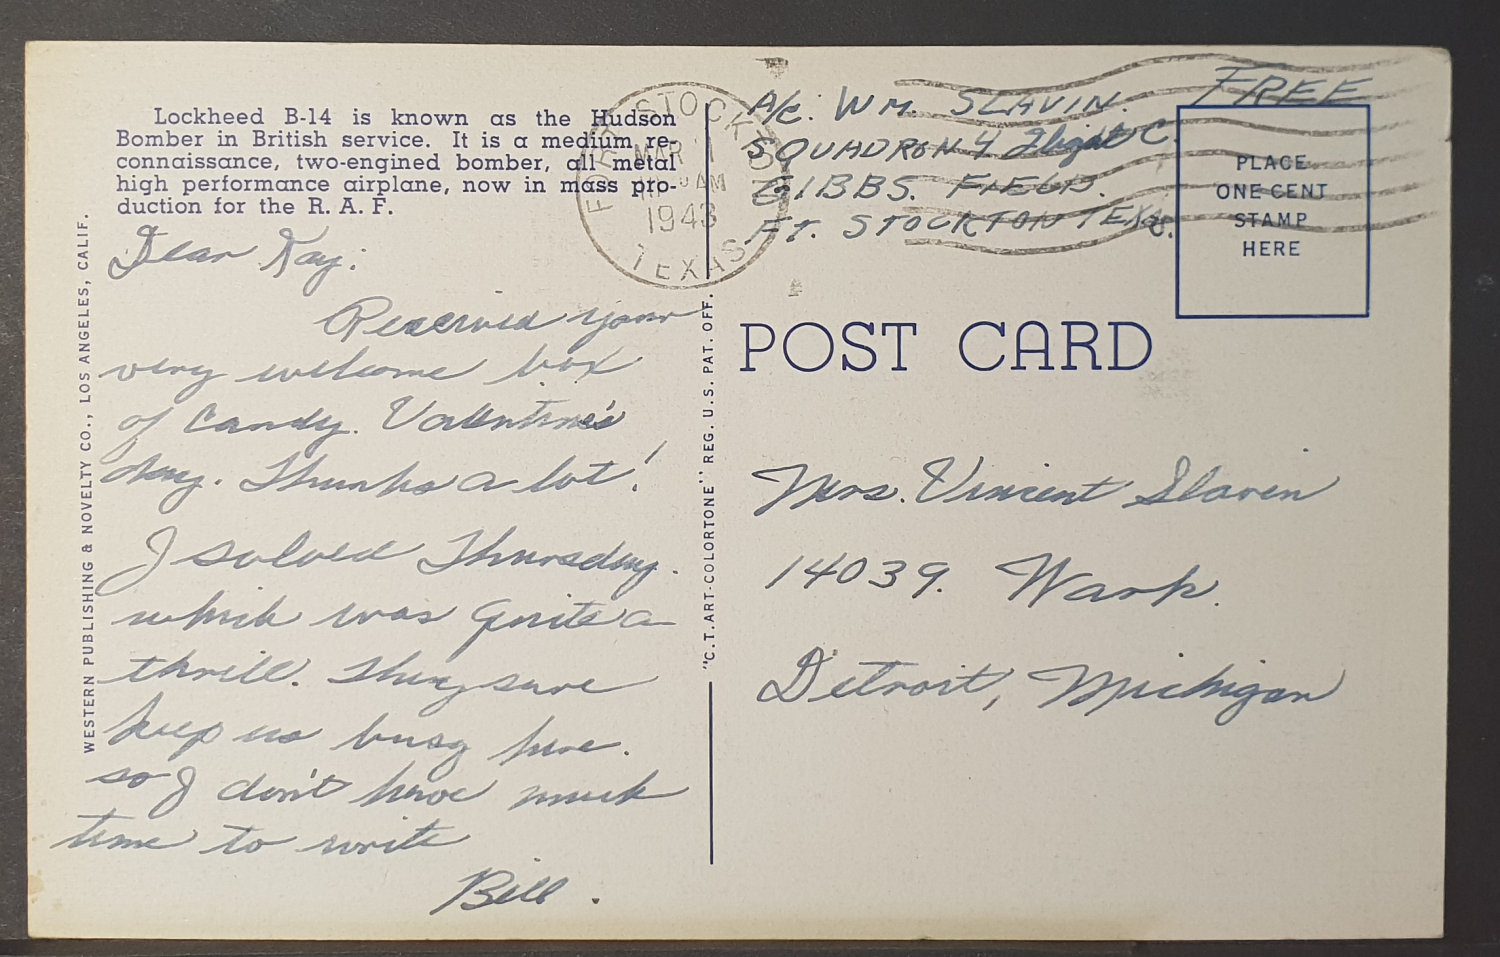 Lockheed B-14 is known as the Hudson
Bomber in British service. It is a medium re-
connaissance, two-engined bomber, all metal
high performance airplane, now in mass pro-
duction for the R. A. F.
Dear Kay:
Received your
very welcome box
of Candy. Valentine's
day. Thanks a lot!
I soloed Thursday.
which was quite a
thrill. They sure
keep us busy here.
so I don't have much
time to write
Bill.
WESTERN PUBLISHING & NOVELTY CO., LOS ANGELES, CALIF.
"C.T.ART-COLORTONE" REG. U.S. PAT. OFF.
FORT STOCKTON
MAR 1
AM
1943
TEXAS
A/C. WM. SLAVIN.
SQUADRON 4 Flight C.
GIBBS. FIELD.
FT. STOCKTON TEXAS.
FREE
PLACE
ONE CENT
STAMP
HERE
POST CARD
Mrs. Vincent Slavin
14039. Wark.
Detroit, Michigan